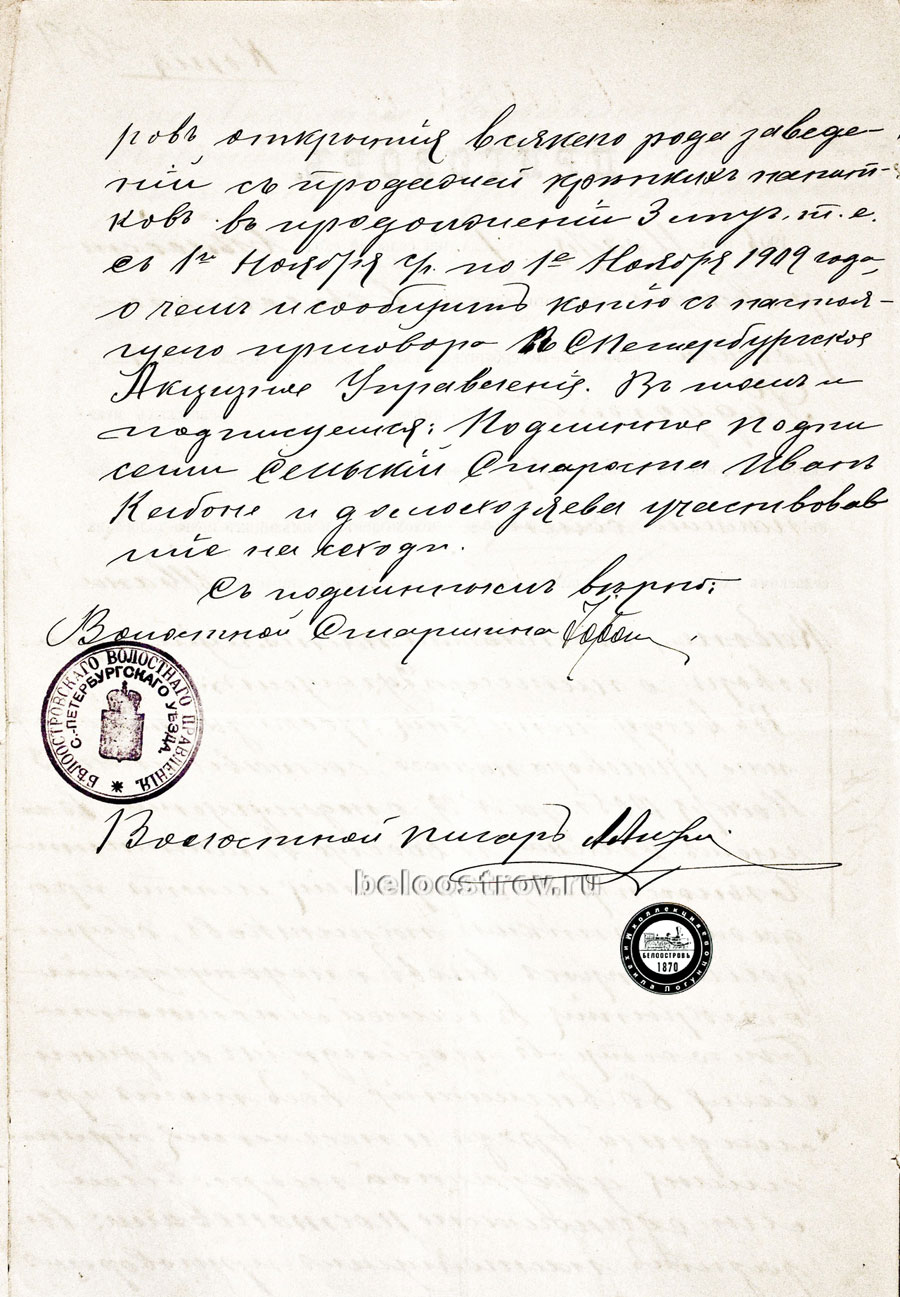 ровъ открытія всякаго рода заведе-
ній съ продажей крѣпкихъ напит-
ковъ въ продолженіи 3 лѣтъ, т. е.
съ 1го Ноября с/г. по 1е Ноября 1909 года,
о чемъ и сообщить копію съ настоя-
щего приговора въ СПетербургское
Акцизное Управленіе. Въ томъ и
подписуемся: Подлинное подпи
сали Сельскій Староста Иванъ
и домохозяева участвовав
шіе на сходѣ.
Съ подлиннымъ вѣрно:
Волостной Старшина
БѢЛООСТРОВСКАГО ВОЛОСТНАГО ПРАВЛЕНІЯ
С.-ПЕТЕРБУРГСКАГО УѢЗДА
Волостной писарь
beloostrov.ru
БЕЛООСТРОВЪ
1870